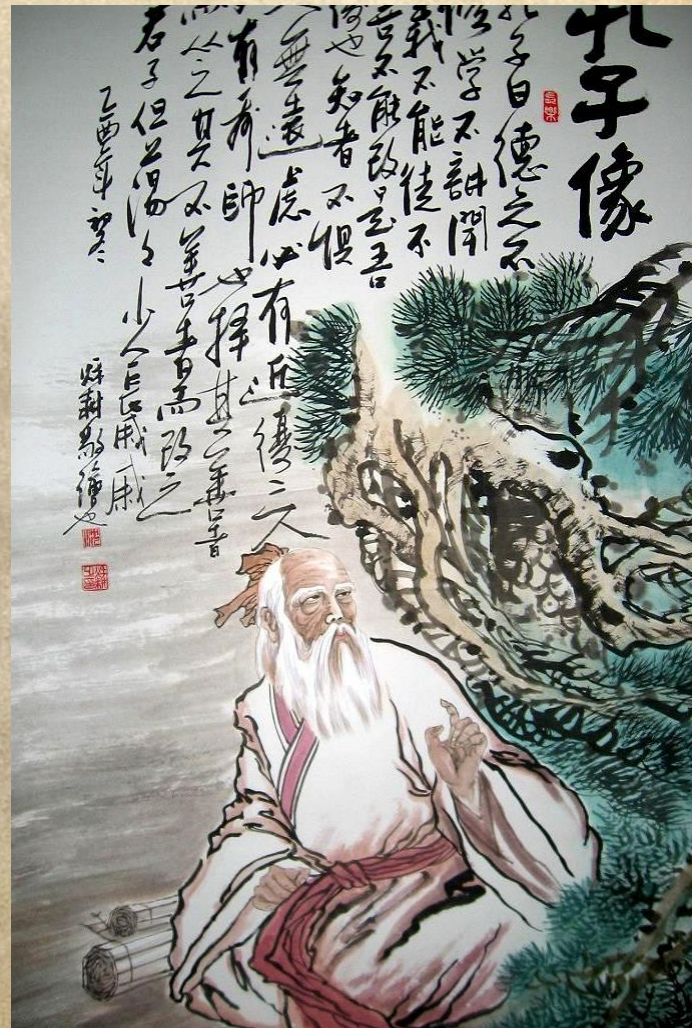 孔子像
長樂
孔子曰德之不
修学不講聞
義不能徙不
善不能改是吾
憂也知者不惧
人無遠慮必有近憂三人
有我師也择其善者
而从之其不善者而改之
君子但蕩々小人長戚戚
乙酉年初冬
敬繪